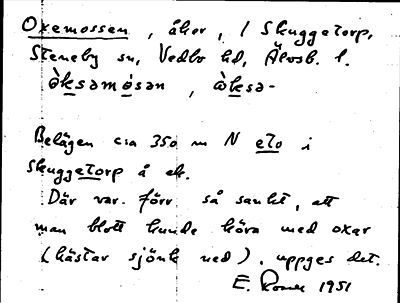 Oxemossen, åkor, i Skuggetorp,
Steneby sn, Vedbo hd, Älvsb. l.
òksəmósən, òksə-
Belägen c:a 350 m N eto i
Skuggetorp å ek.
Där var förr så sankt, att
man blott kunde köra med oxar
(hästar sjönk ned), uppges det.
E. Rosell 1951